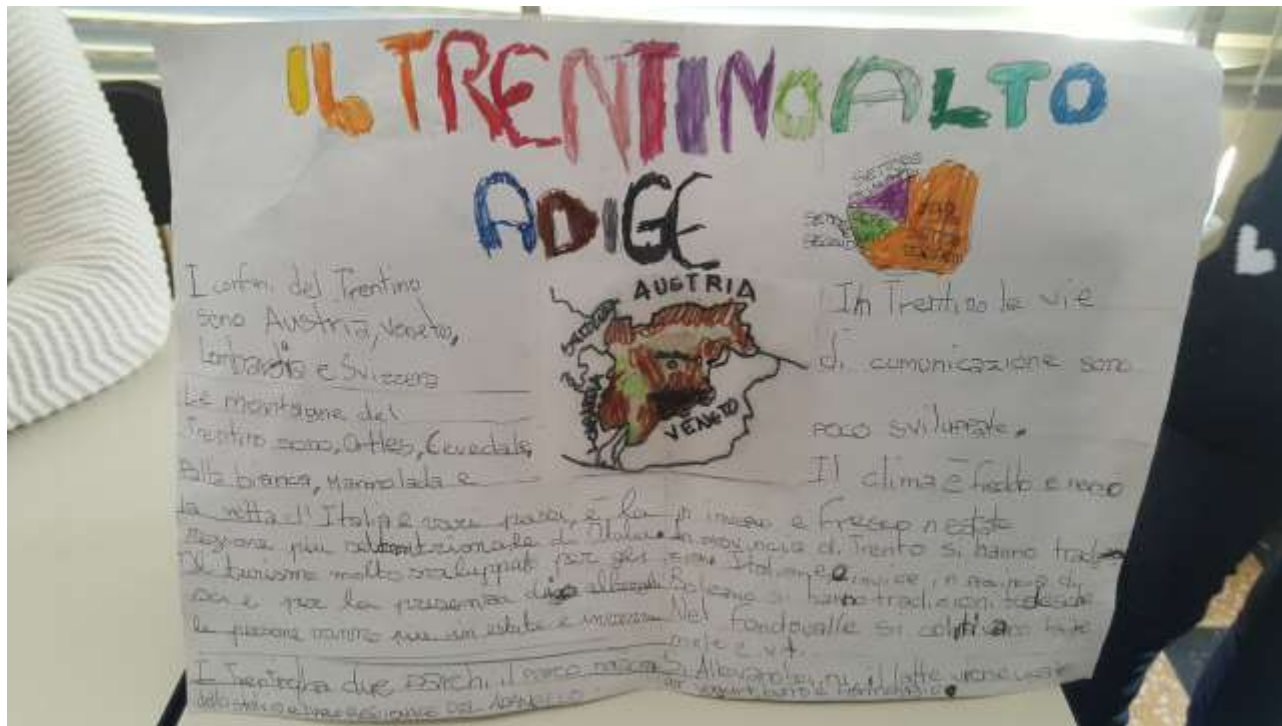 IL TRENTINO ALTO
ADIGE
SETTORE
I confini del Trentino
sono Austria, Veneto,
Lombardia e Svizzera
Le montagne del
Trentino sono, Ortles, Cevedale,
Palla bianca, Marmolada e
la vetta d'Italia e vari passi, è la
regione più settentrionale d'Italia.
Il turismo molto sviluppato per gli
sci e per la presenza di alberghi
le persone vanno più in estate e inverno
I Trentino ha due parchi, il parco nazionale
dello stelvio e
AUSTRIA
SVIZZERA
LOMBARDIA
VENETO
In Trentino le vie
di comunicazione sono
poco sviluppate.
Il clima è freddo e
in inverno e fresco n estate
In provincia di Trento si hanno tradi
zioni Italiane, invece in provincia di
Bolzano si hanno tradizioni tedesche
Nel fondovalle si coltivano
mele e
Si Allevano bovini, il latte viene usato
per yogurt, burro e formaggio